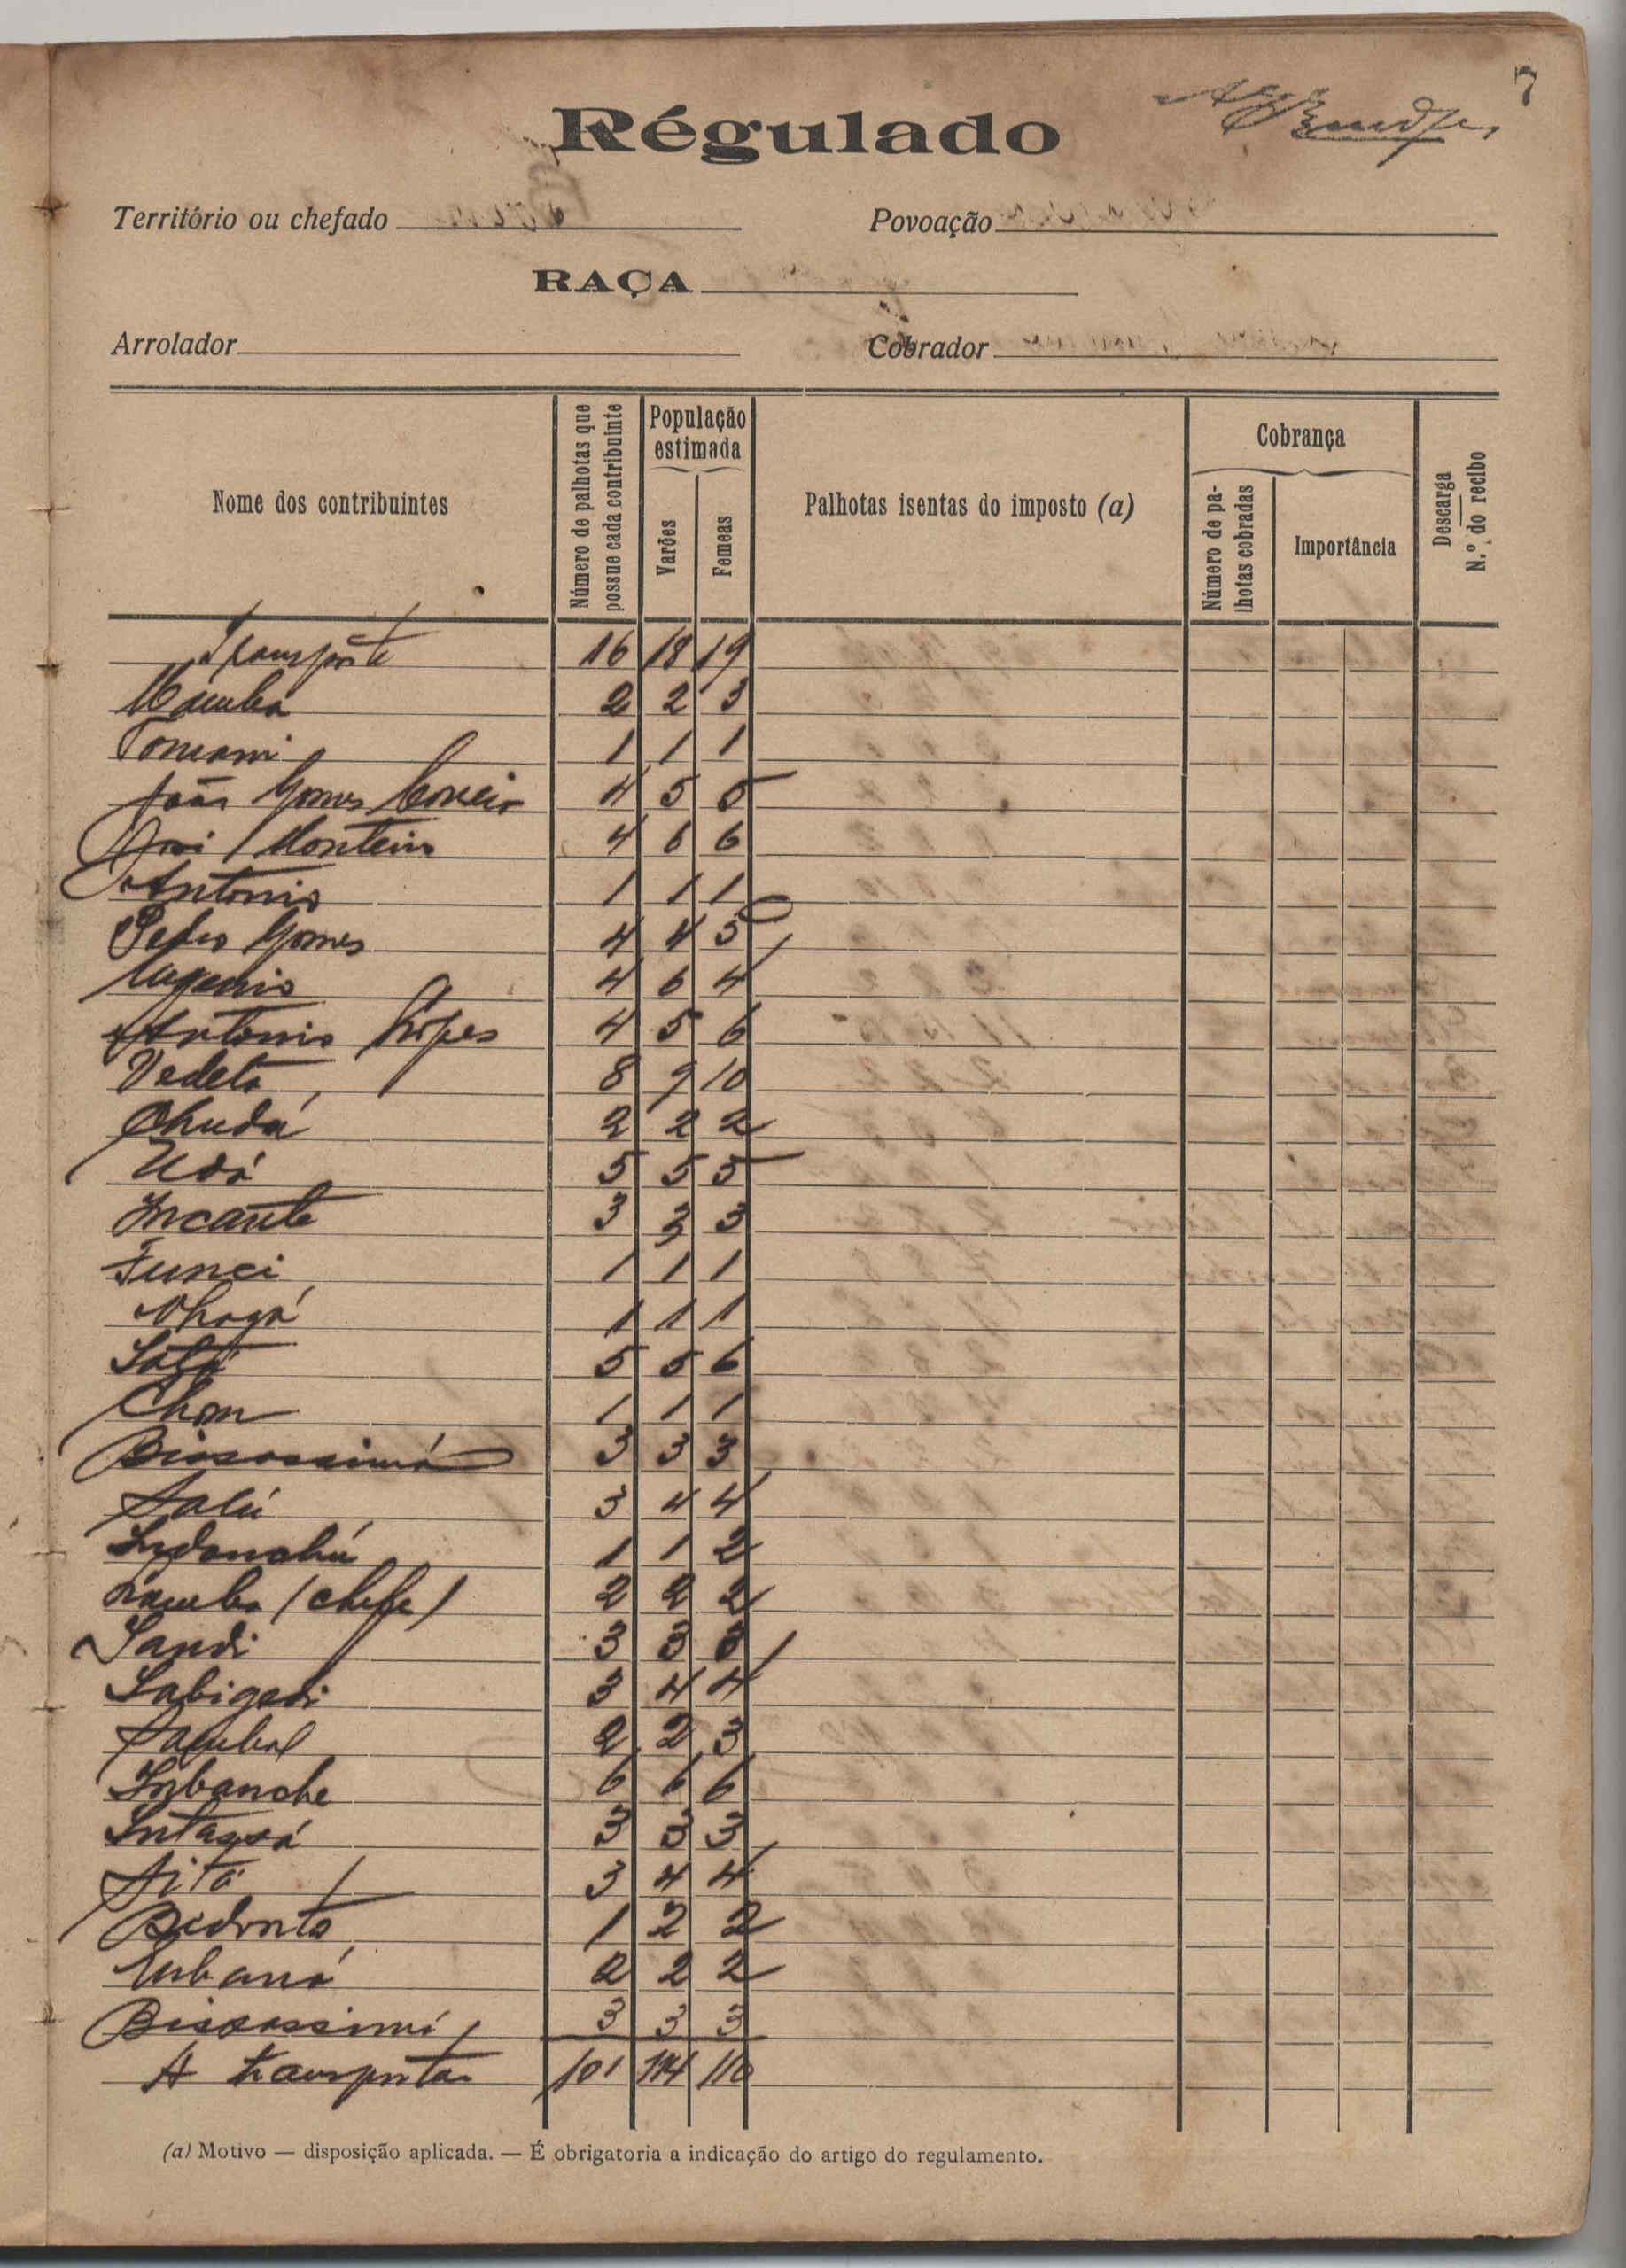 7
Régulado
Território ou chefado
Povoação
RAÇA
Arrolador
Cobrador
Nome dos contribuintes
Número de palhotas que possue cada contribuinte
População estimada
Varões
Femeas
Palhotas isentas do imposto (a)
Cobrança
Número de palhotas cobradas
Importância
Descarga
N.º do recibo
Transporte 16 18 19
Mamba 2 2 3
Tomani 1 1 1
João Gomes Correia 4 5 5
José Monteiro 4 6 6
Antonio 1 1 1
Pedro Gomes 4 4 5
Eugenio 4 6 4
Antonio Lopes 4 5 6
Vedeta 8 9 10
Chudá 2 2 2
Udó 5 5 5
Incante 3 3 3
Funci 1 1 1
Nhagá 1 1 1
5 5 6
Chom 1 1 1
3 3 3
Salú 3 4 4
Indanchú 1 1 2
Namba (chefe) 2 2 2
Sandi 3 3 3
Sabigadi 3 4 4
Sambal 2 2 3
Inbanche 6 6 6
3 3 3
Sitá 3 4 4
Bidonta 1 2 2
Urbanó 2 2 2
3 3 3
A transportar 101 114 110
(a) Motivo — disposição aplicada. — É obrigatoria a indicação do artigo do regulamento.